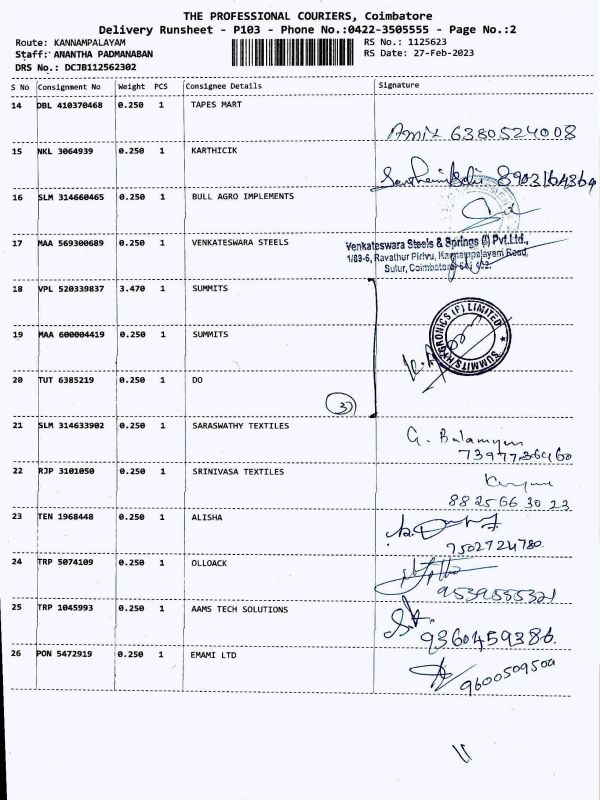 THE PROFESSIONAL COURIERS, Coimbatore
Delivery Runsheet - P103 - Phone No.:0422-3505555 - Page No.:2
Route: KANNAMPALAYAM RS No.: 1125623
Staff: ANANTHA PADMANABAN RS Date: 27-Feb-2023
DRS No.: DCJB112562302
S No Consignment No Weight PCS Consignee Details Signature
14 DBL 410370468 0.250 1 TAPES MART
Amit 6380524008
15 NKL 3064939 0.250 1 KARTHICIK
8903164369
16 SLM 314660465 0.250 1 BULL AGRO IMPLEMENTS
17 MAA 569300689 0.250 1 VENKATESWARA STEELS
Venkateswara Steels & Springs (I) Pvt.Ltd.,
1/89-6, Ravathur Pirivu, Kannampalayam Road,
Sulur, Coimbatore-641 402.
18 VPL 520339837 3.470 1 SUMMITS
19 MAA 600004419 0.250 1 SUMMITS
SUMMITS HYGRONICS (P) LIMITED
20 TUT 6385219 0.250 1 DO
3
21 SLM 314633902 0.250 1 SARASWATHY TEXTILES
G. Balamyun
7397736460
22 RJP 3101050 0.250 1 SRINIVASA TEXTILES
88 25 66 30 23
23 TEN 1968448 0.250 1 ALISHA
7502724780.
24 TRP 5074109 0.250 1 OLLOACK
9539555321
25 TRP 1045993 0.250 1 AAMS TECH SOLUTIONS
9360459386.
26 PON 5472919 0.250 1 EMAMI LTD
9600509500